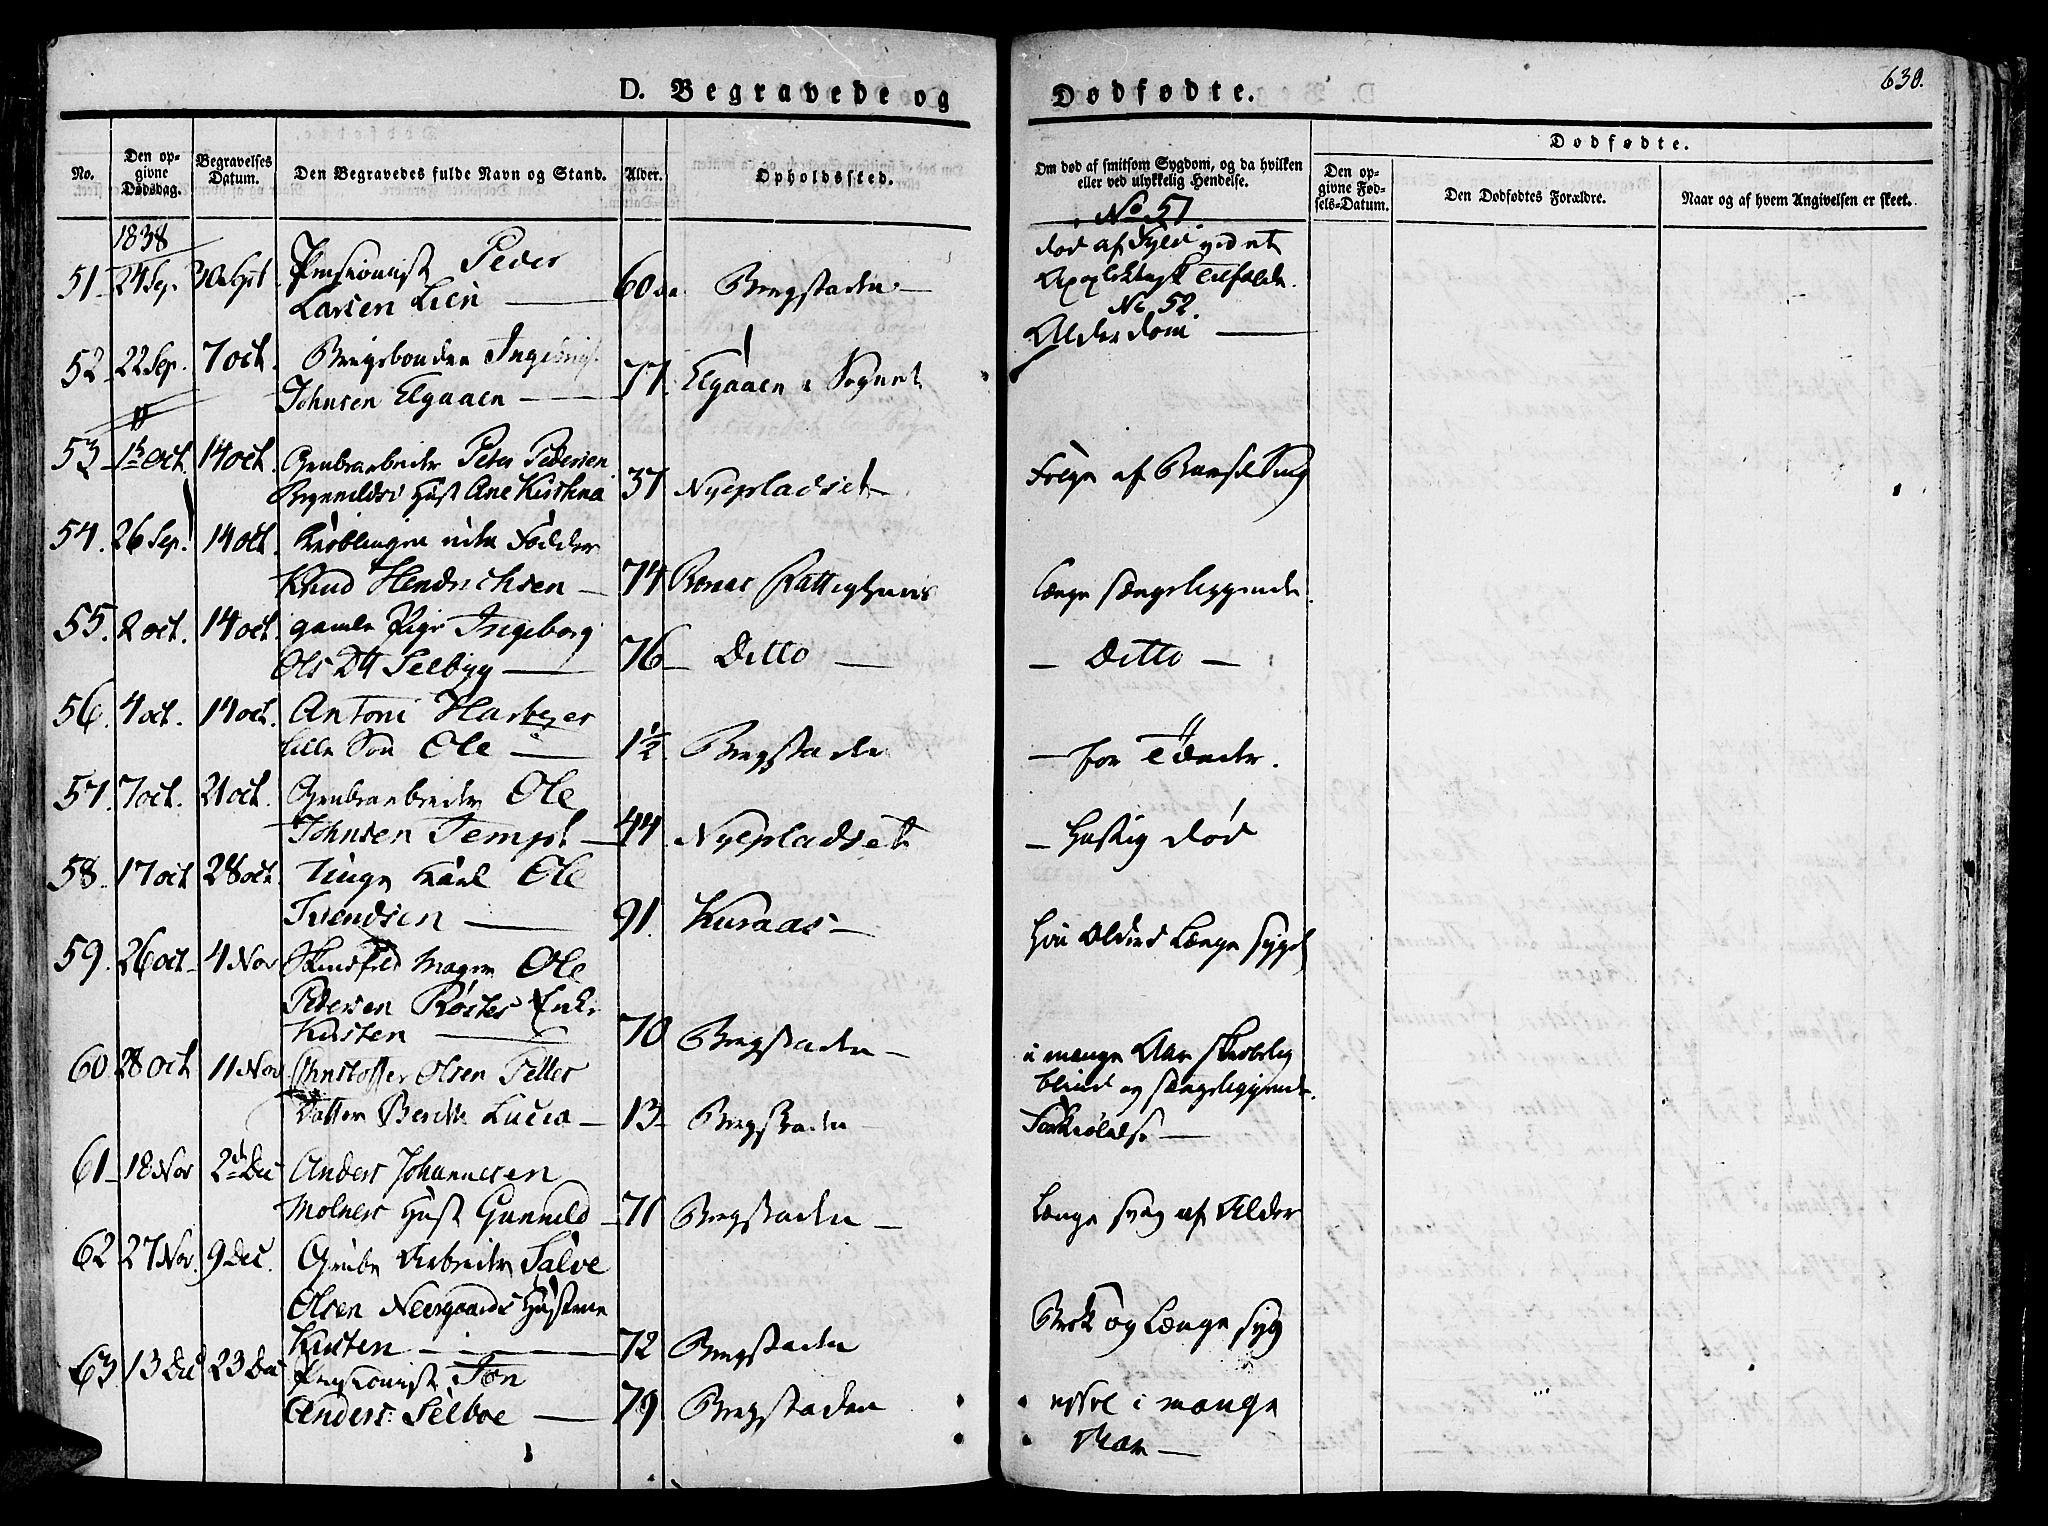 630.
D. Begravede og
Dødfødte.
No.
Den opgivne Dødsdag.
Begravelses Datum.
Den Begravedes fulde Navn og Stand.
Alder.
Opholdssted.
Om død af smitsom Sygdom, og da hvilken eller ved ulykkelig Hendelse.
Dødfødte.
Den opgivne Fødsels-Datum.
Den Dødfødtes Forældre.
Naar og af hvem Angivelsen er skeet.
1838
51 24 Sep. 30 Sept Pensionist Peder
Larsen Lien 60 Bergstaden
No 51
død af Fyld ved et
Apoplektisk Tilfælde.
52 22 Sep. 7 oct. Bergsbonden
Johnsen Elgaaen 77. Elgaaen i Sognet
No. 52
Alderdom
53 1 Oct. 14 oct. Grubearbeider Peter Pedersen
Hust Ane Kirstina 37 Nyepladset
Følge af Barselseng
54. 26 Sep. 14 oct. uden Fødder
Knud Hendrichsen 74 Røraas Fattighuus
Længe sængeliggende.
55. 2 oct. 14 oct. gamle Pige Ingeborg
Ols Dtt Selbyg 76 Ditto
Ditto
56. 4 oct. 14 oct. Antoni
lille Søn Ole 1½ Bergstaden
for Tænder.
57. 7 oct. 21 oct. Grubearbeider Ole
Johnsen Tempel 44 Nyepladset
Hastig død
58. 17 oct 28 oct. Ole
Svendsen 91. Kuraas
Høi Alder Længe syg
59. 26 oct. 4 Nov Ole
Pedersen Røstes Enke
Kirsten 70 Bergstaden
i mange Aar
blind og sængeliggende.
60 28 oct 11 Nov Christoffer Olsen Feller
Datter Berethe Lucia 13 Bergstaden
Forkiølelse
61 18 Nov 2 Dec Anders Johannesen
Molners Hust Gunnild 71 Bergstaden
Længe svag af Alder
62 27 Nov. 9 Dec. Grube Arbeider Salve
Olsen Neergaards Hustrue
Kirsten 72 Bergstaden
Brok og Længe syg
63 13 Dec 23 Dec Pensionist Jon
Anders: Selboe 79 Bergstaden
i mange
Aar